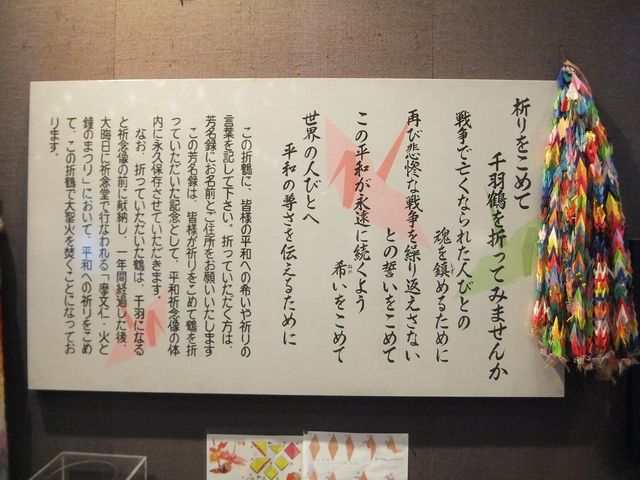 祈りをこめて
千羽鶴を折ってみませんか
戦争で亡くなられた人びとの
魂を鎮めるために
再び悲惨な戦争を繰り返えさない
との誓いをこめて
この平和が永遠に続くよう
希いをこめて
世界の人びとへ
平和の尊さを伝えるために
この折鶴に、皆様の平和への希いや祈りの
言葉を記して下さい。折っていただく方は、
芳名録にお名前とご住所をお願いいたします
この芳名録は、皆様が祈りをこめて鶴を折
っていただいた記念として、平和祈念像の体
内に永久保存させていただきます。
なお、折っていただいた鶴は、千羽になる
と祈念像の前に献納し、一年間経過した後、
大晦日に祈念堂で行なわれる「摩文仁・火と
鐘のまつり」において、平和への祈りをこめ
て、この折鶴で大聖火を焚くことになってお
ります。